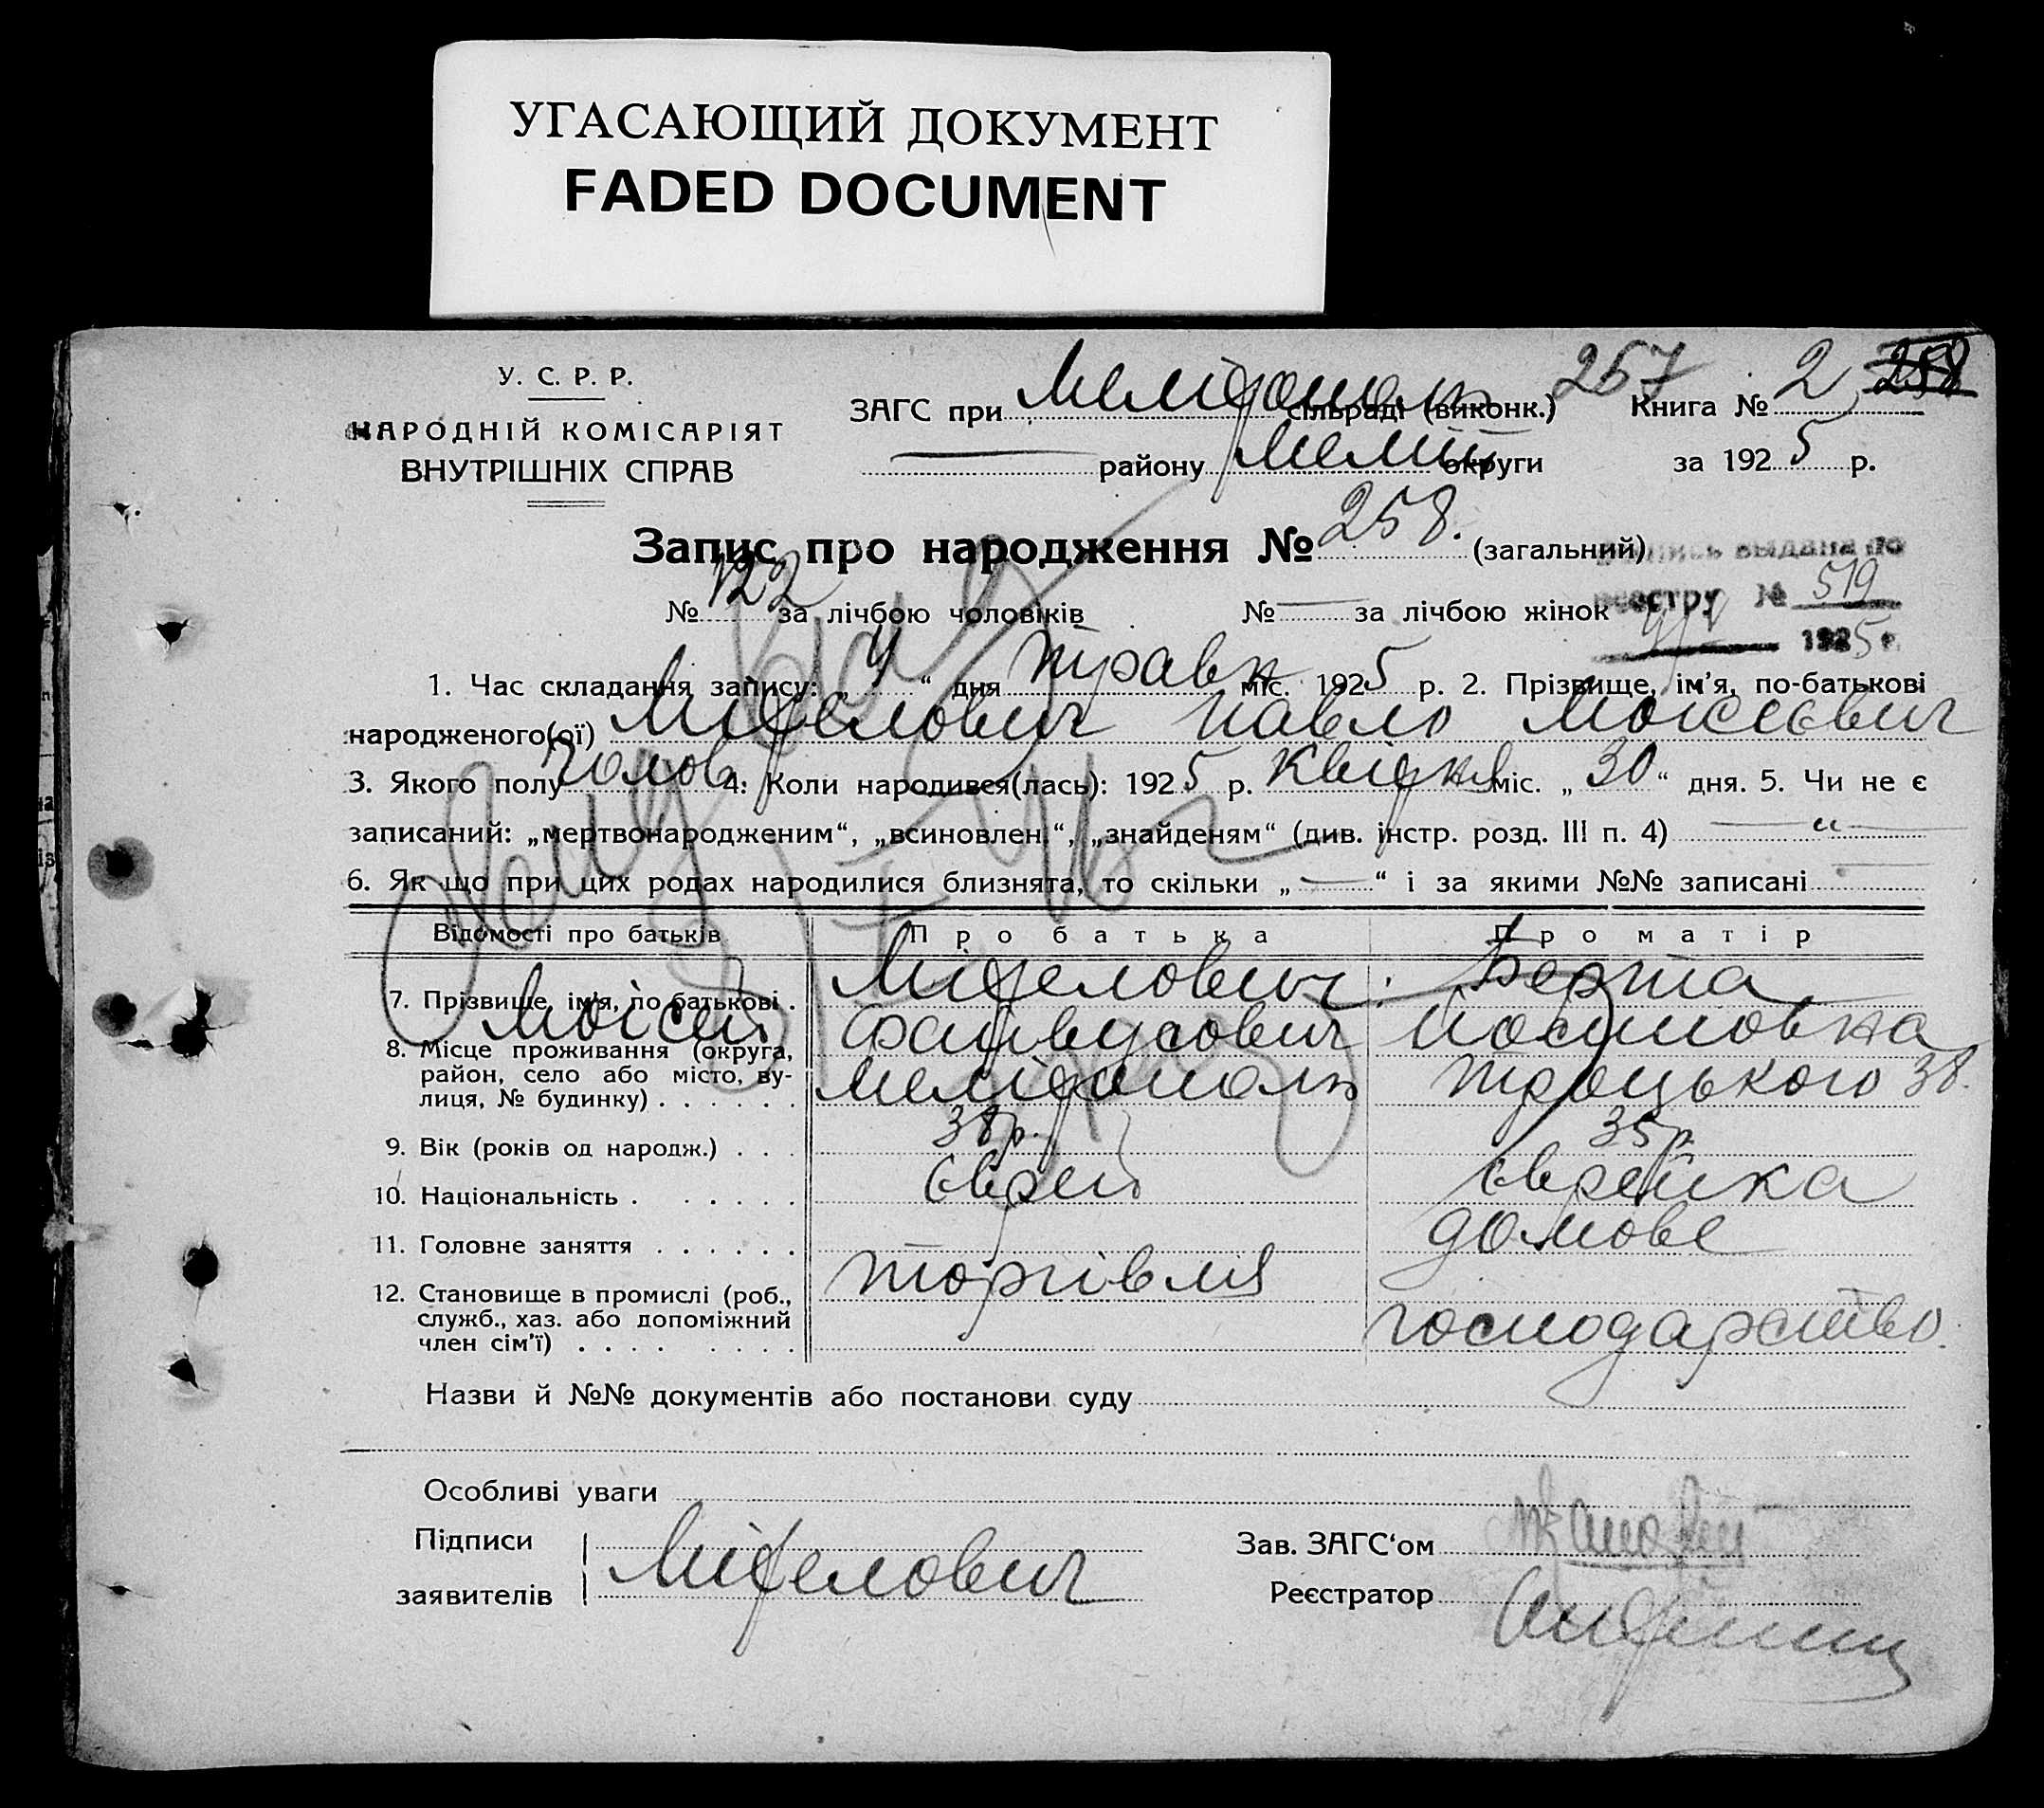 УГАСАЮЩИЙ ДОКУМЕНТ
FADED DOCUMENT
У. С. Р. Р.
НАРОДНІЙ КОМІСАРІЯТ
ВНУТРІШНІХ СПРАВ
257
ЗАГС при Меліտополь сільраді (виконк.) Книга № 2 258
— району Меліт округи за 1925 р.
Запис про народження № 258. (загальний)
№ 122 за лічбою чоловіків № — за лічбою жінок
выдана по
реестру № 519
1925 г.
1. Час складання запису: „ 4 “ дня травн міс. 1925 р. 2. Прізвище, ім'я, по-батькові
народженого(ої) Мітелович Павло Мойсеєвич
3. Якого полу чолов 4. Коли народився(лась): 1925 р. Квітня міс. „ 30 “ дня. 5. Чи не є
записаний: „мертвонародженим“, „всиновлен.“, „знайденям“ (див. інстр. розд. III п. 4) — „ —
6. Як що при цих родах народилися близнята, то скільки „ — “ і за якими №№ записані
Відомості про батьків Про батька Про матір
7. Прізвище, ім'я, по батькові . Мітелович Берта
Мойсей
8. Місце проживання (округа, район, село або місто, ву-
лиця, № будинку) . . . . . . Меліտополь Троцького 38.
9. Вік (років од народж.) . . . 38 р. 35 р.
10. Національність . . . . . . Єврей Єврейка
11. Головне заняття . . . . . . Торгівля домове
12. Становище в промислі (роб.,
служб., хаз. або допоміжний
член сім'ї) . . . . . . . . господарство.
Назви й №№ документів або постанови суду
Особливі уваги
Підписи
заявителів Мітелович
Зав. ЗАГС‘ом
Реєстратор